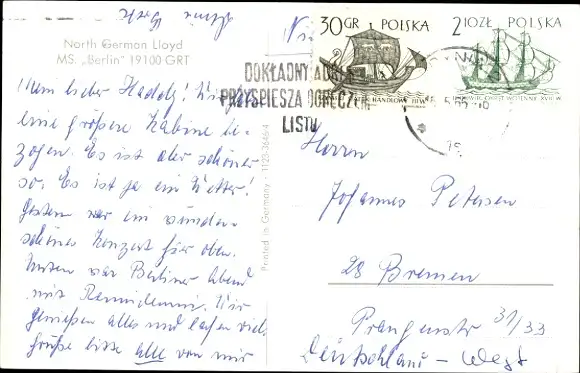 North German Lloyd
MS. „Berlin" 19100 GRT
Mein lieber
eine größere Kabine be-
zogen. Es ist aber schöner
so. Es ist ja ein Wetter!
Gestern war ein wunder-
schönes Konzert hier oben.
Unten war Berliner Abend
mit Wir
genießen alles und lachen viel
Grüße bitte alle von mir
Printed in Germany · 1123-3646/4
30 GR POLSKA
2,10 ZŁ POLSKA
DOKŁADNY ADRES
PRZYSPIESZA DORĘCZENIE
LISTU
Herrn
Johannes Petersen
28 Bremen
Prangenstr 31/33
Deutschland – West